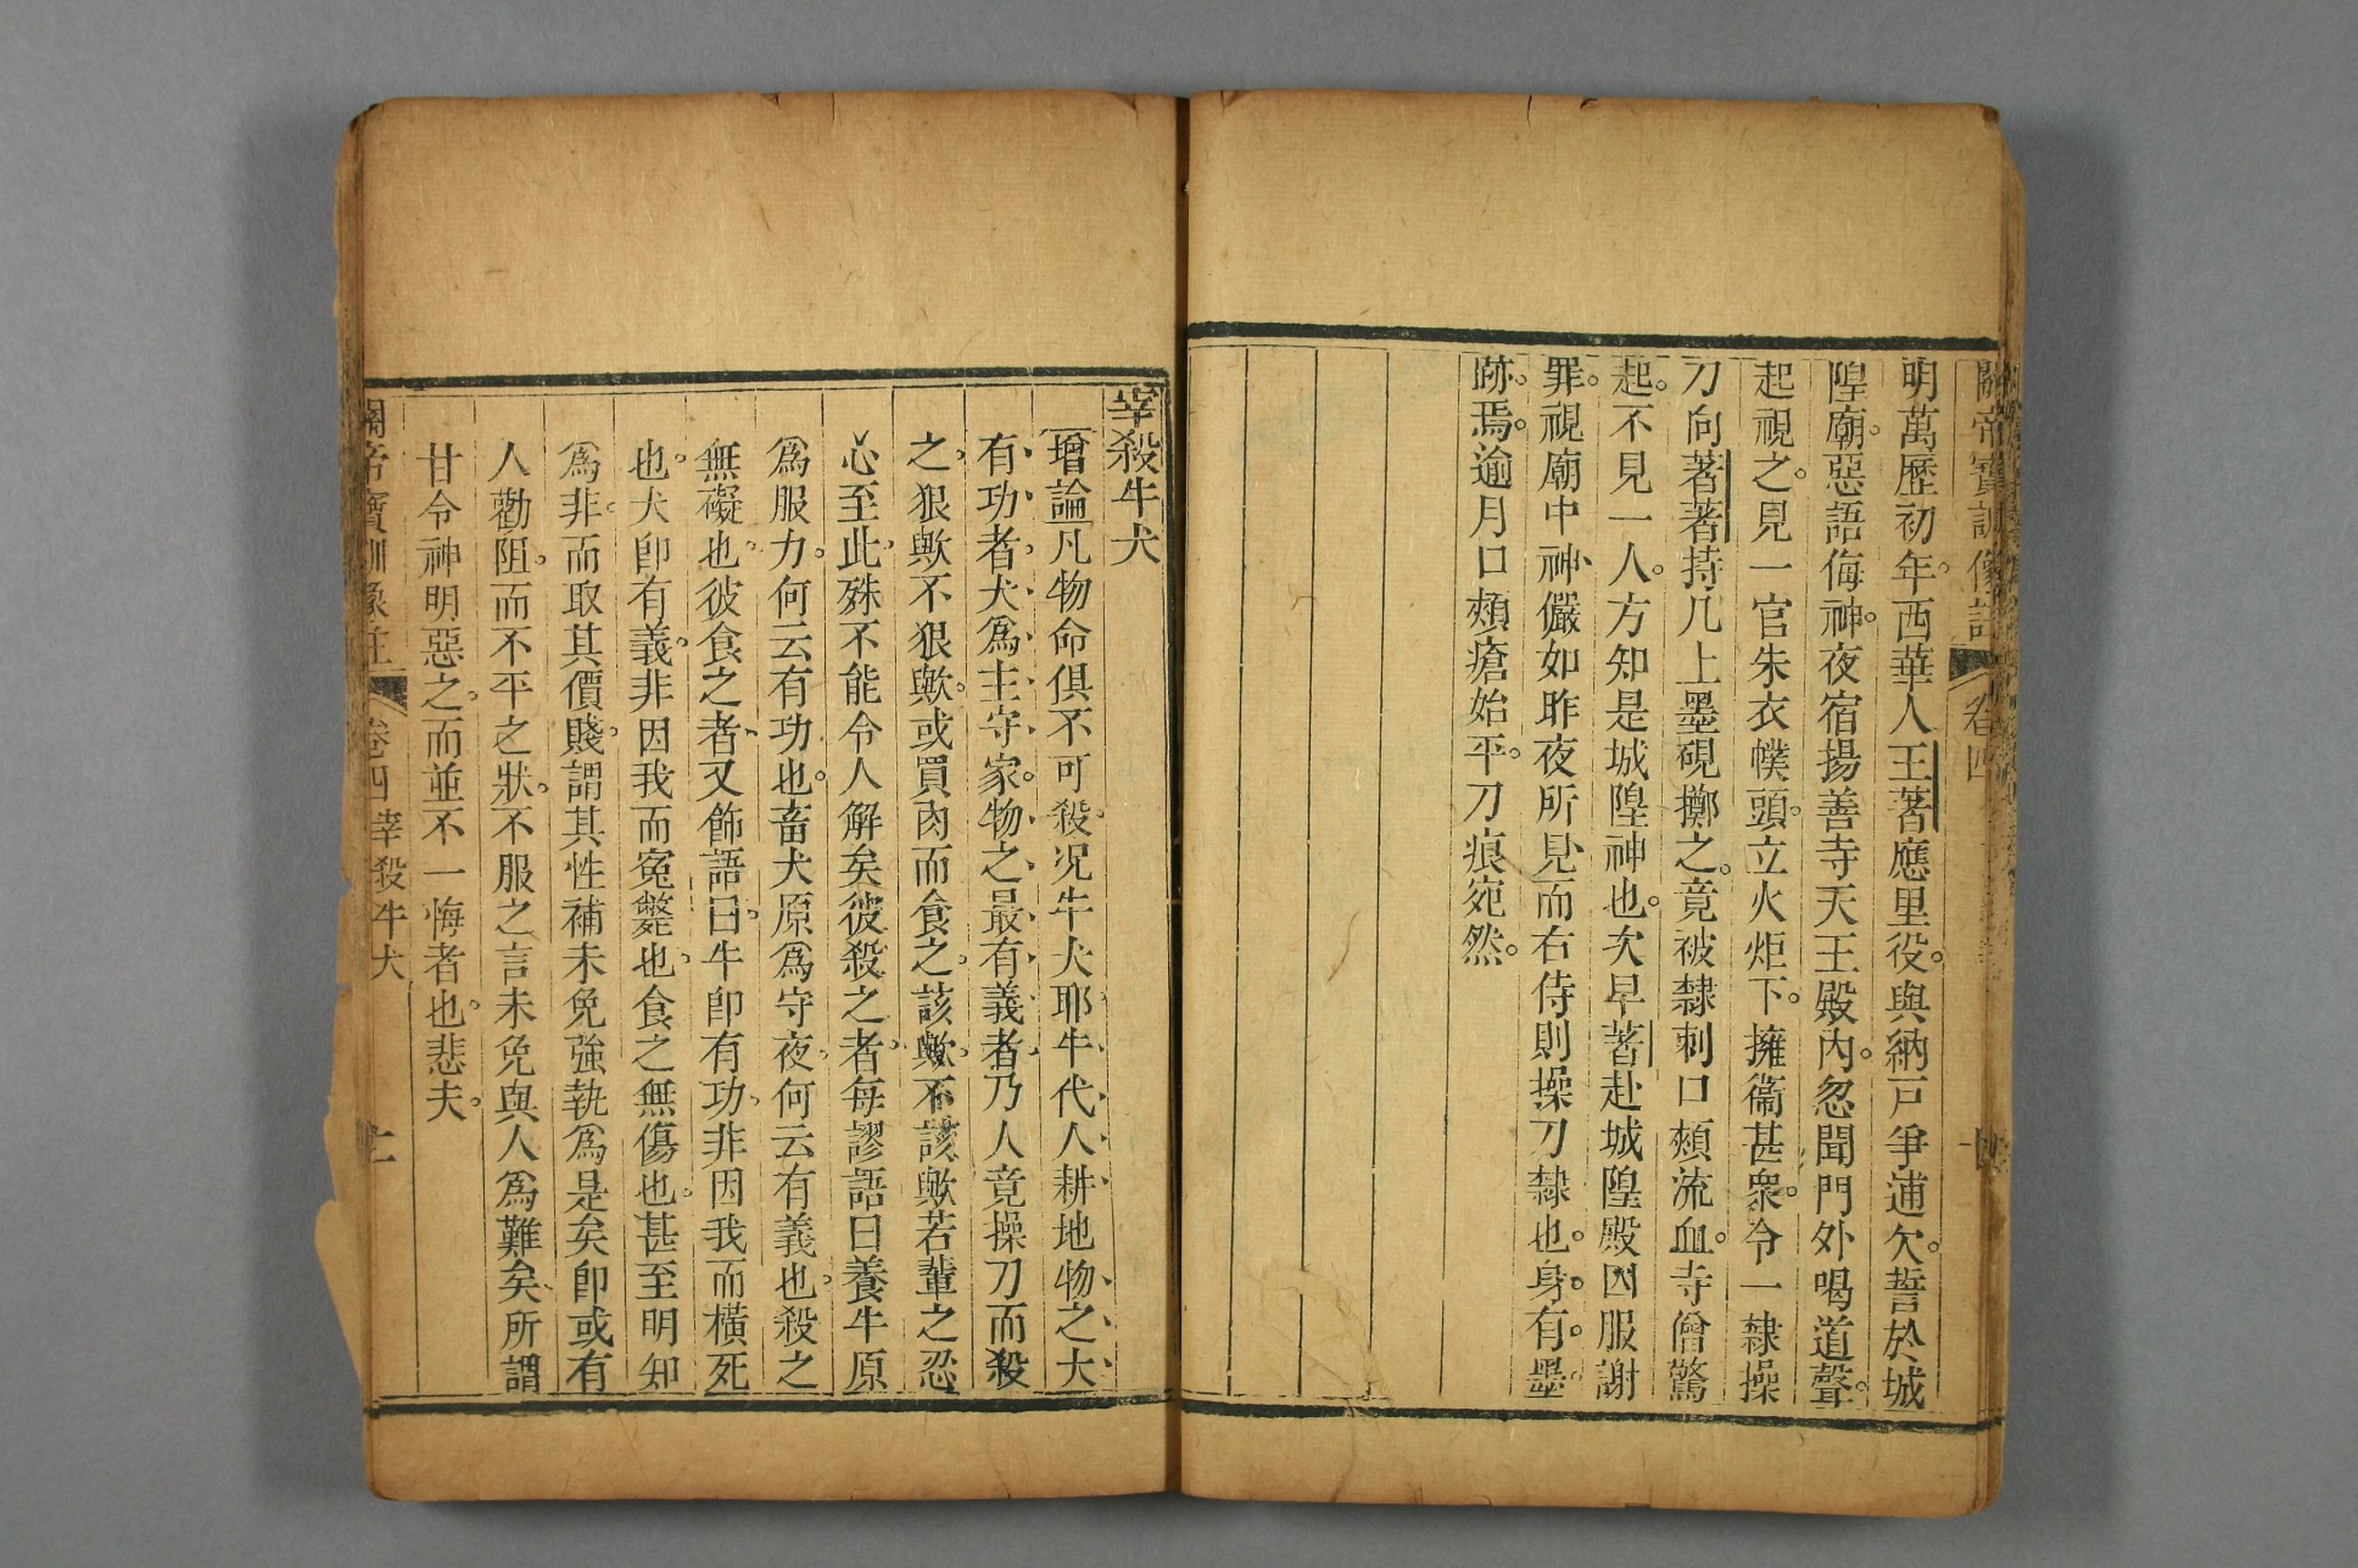 關帝寶訓像註 卷四
明萬歷初年。西華人王著應里役。與納戸爭逋欠。誓於城
隍廟。惡語侮神。夜宿揚善寺天王殿內。忽聞門外喝道聲。
起視之。見一官朱衣幞頭。立火炬下。擁衞甚衆。令一隸操
刀向著。著持几上墨硯擲之。竟被隸刺口頰流血。寺僧驚
起。不見一人。方知是城隍神也。次早著赴城隍殿囚服謝
罪。視廟中神、儼如昨夜所見、而右侍則操刀隸也。身。有。墨。
跡。焉。逾月口頰瘡始平。刀痕宛然。
宰殺牛犬
增論凡物命俱不可殺。况牛犬耶。牛代人耕地物之大
有功者。犬爲主守家。物之最有義者。乃人竟操刀而殺
之。狠歟不狠歟。或買肉而食之。該歟。不該歟若輩之忍
心至此。殊不能令人解矣彼殺之者。每謬語曰養牛原
爲服力。何云有功也。畜犬原爲守夜。何云有義也。殺之
無礙也。彼食之者、又飾語曰。牛卽有功。非因我而橫死
也。犬卽有義。非因我而寃斃也。食之無傷也。甚至明知
爲非。而取其價賤。謂其性補未免強執爲是矣卽或有
人勸阻。而不平之狀。不服之言未免與人爲難矣、所謂
甘令神明惡之。而並不一悔者也。悲夫。
關帝寶訓像註 卷四 宰殺牛犬